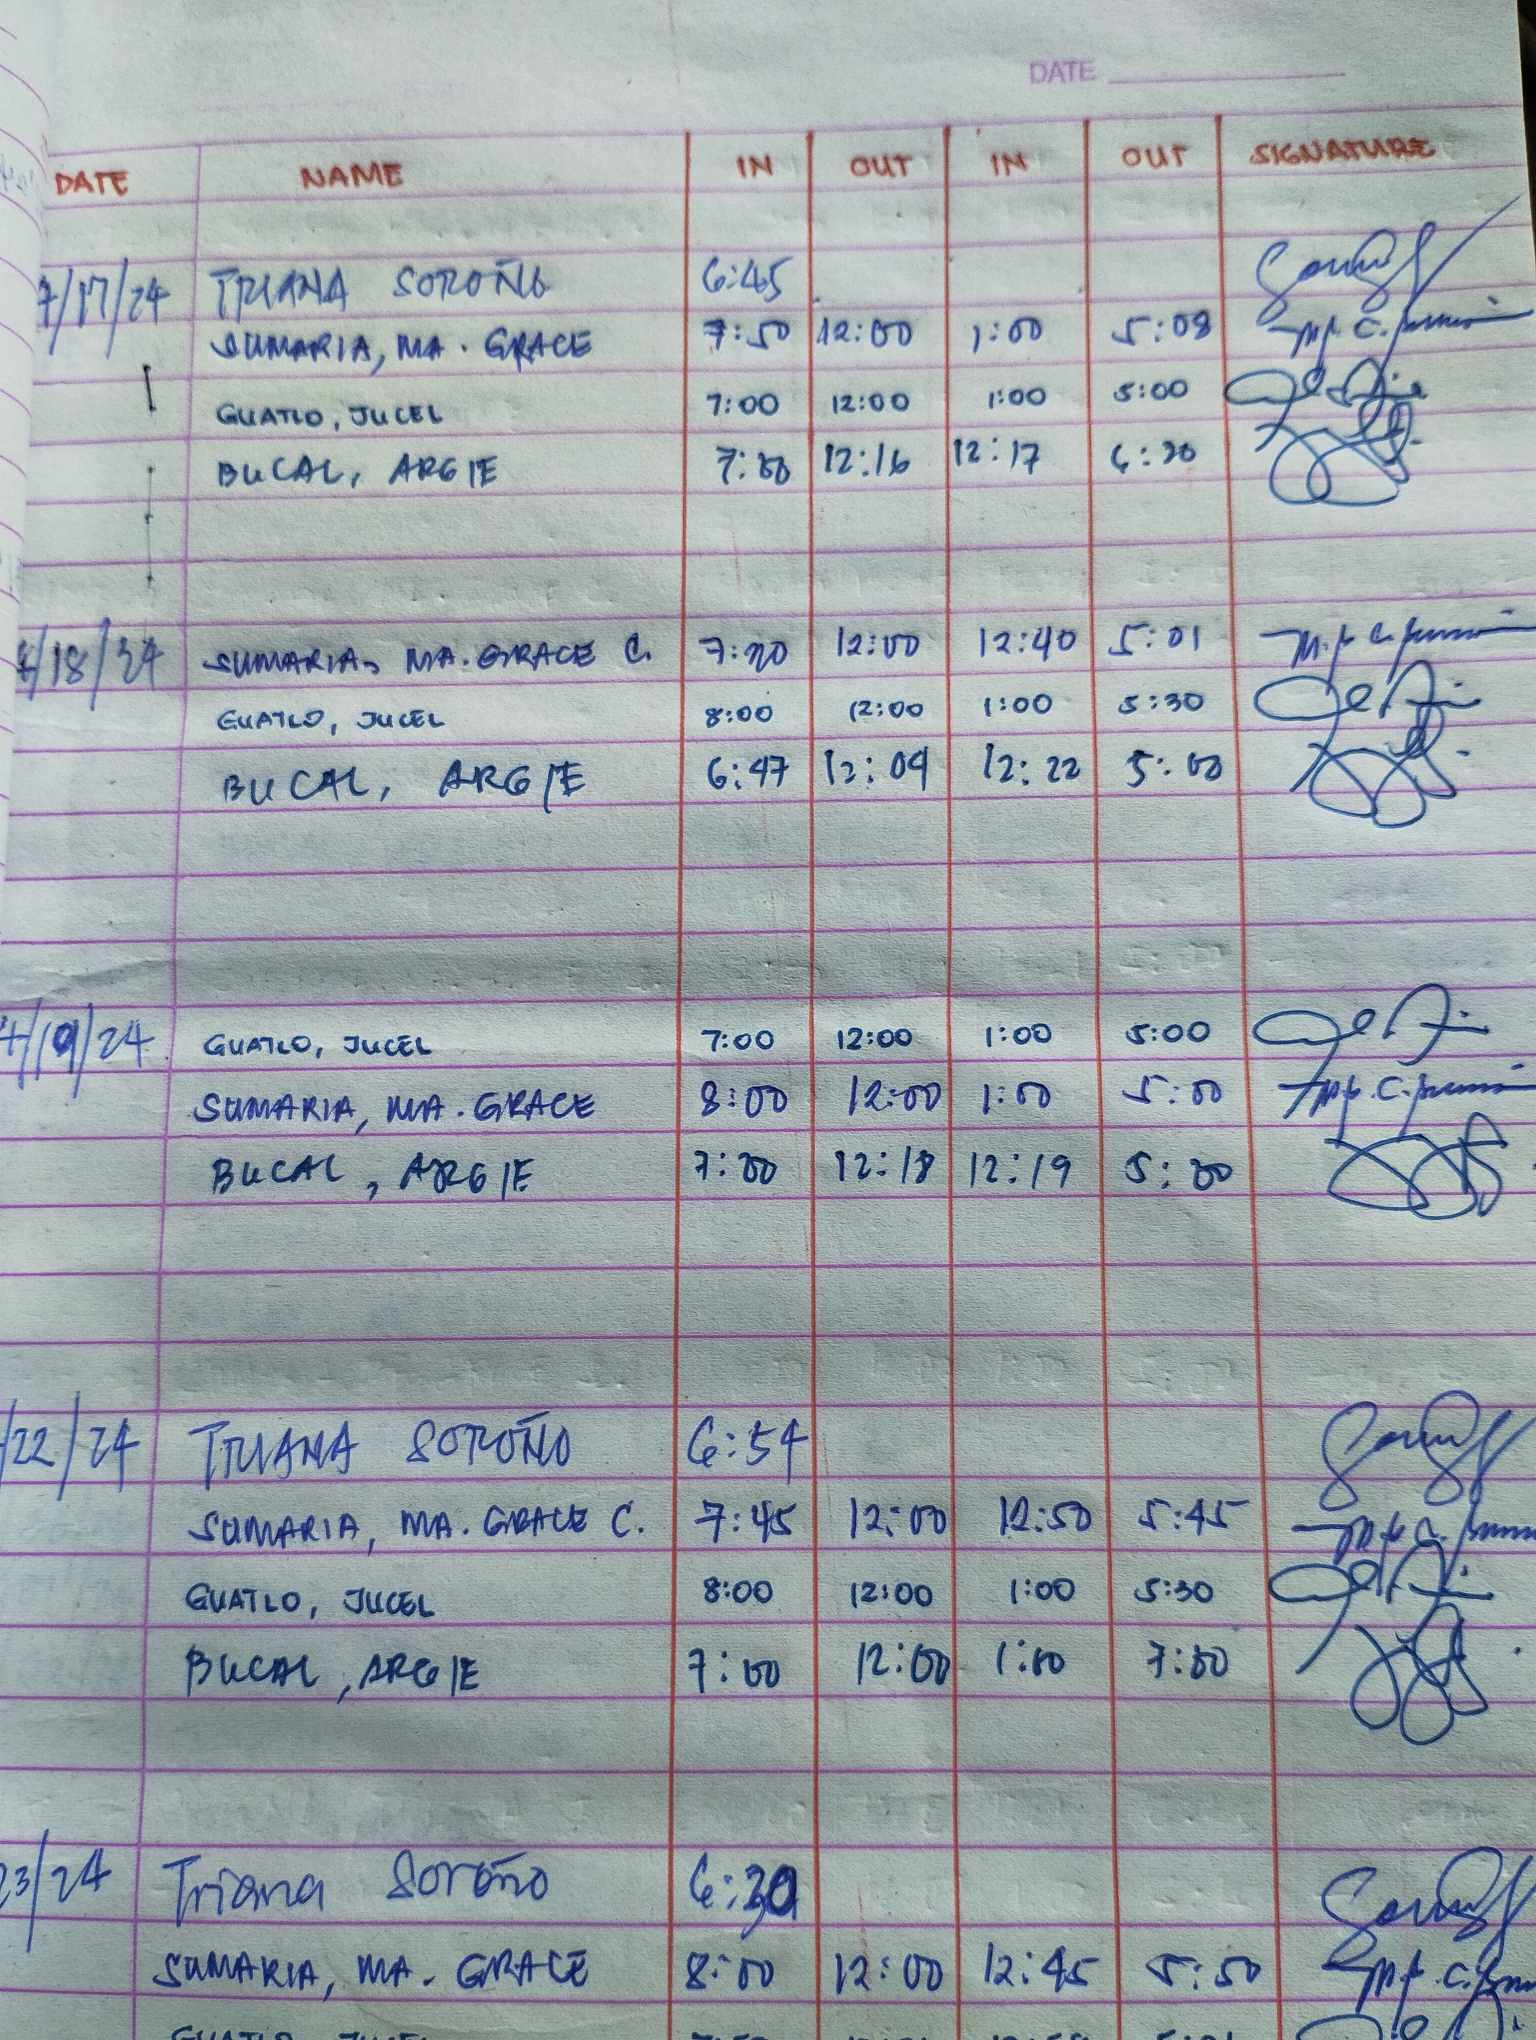 DATE
DATE NAME IN OUT IN OUT SIGNATURE
7/17/24 TRIANA SOROÑO 6:45
SUMARIA, MA. GRACE 7:50 12:00 1:00 5:08
GUATLO, JUCEL 7:00 12:00 1:00 5:00
BUCAL, ARGIE 7:00 12:16 12:17 6:30
/18/24 SUMARIA, MA. GRACE C. 7:20 12:00 12:40 5:01
GUATLO, JUCEL 8:00 12:00 1:00 5:30
BUCAL, ARGIE 6:47 12:09 12:22 5:00
/19/24 GUATLO, JUCEL 7:00 12:00 1:00 5:00
SUMARIA, MA. GRACE 8:00 12:00 1:00 5:00
BUCAL, ARGIE 7:00 12:18 12:19 5:00
/22/24 TRIANA SOROÑO 6:54
SUMARIA, MA. GRACE C. 7:45 12:00 12:50 5:45
GUATLO, JUCEL 8:00 12:00 1:00 5:30
BUCAL, ARGIE 7:00 12:00 1:00 7:00
23/24 Triana Soroño
SUMARIA, MA. GRACE 8:00 12:00 12:45 5:50
GUATLO, JUCEL